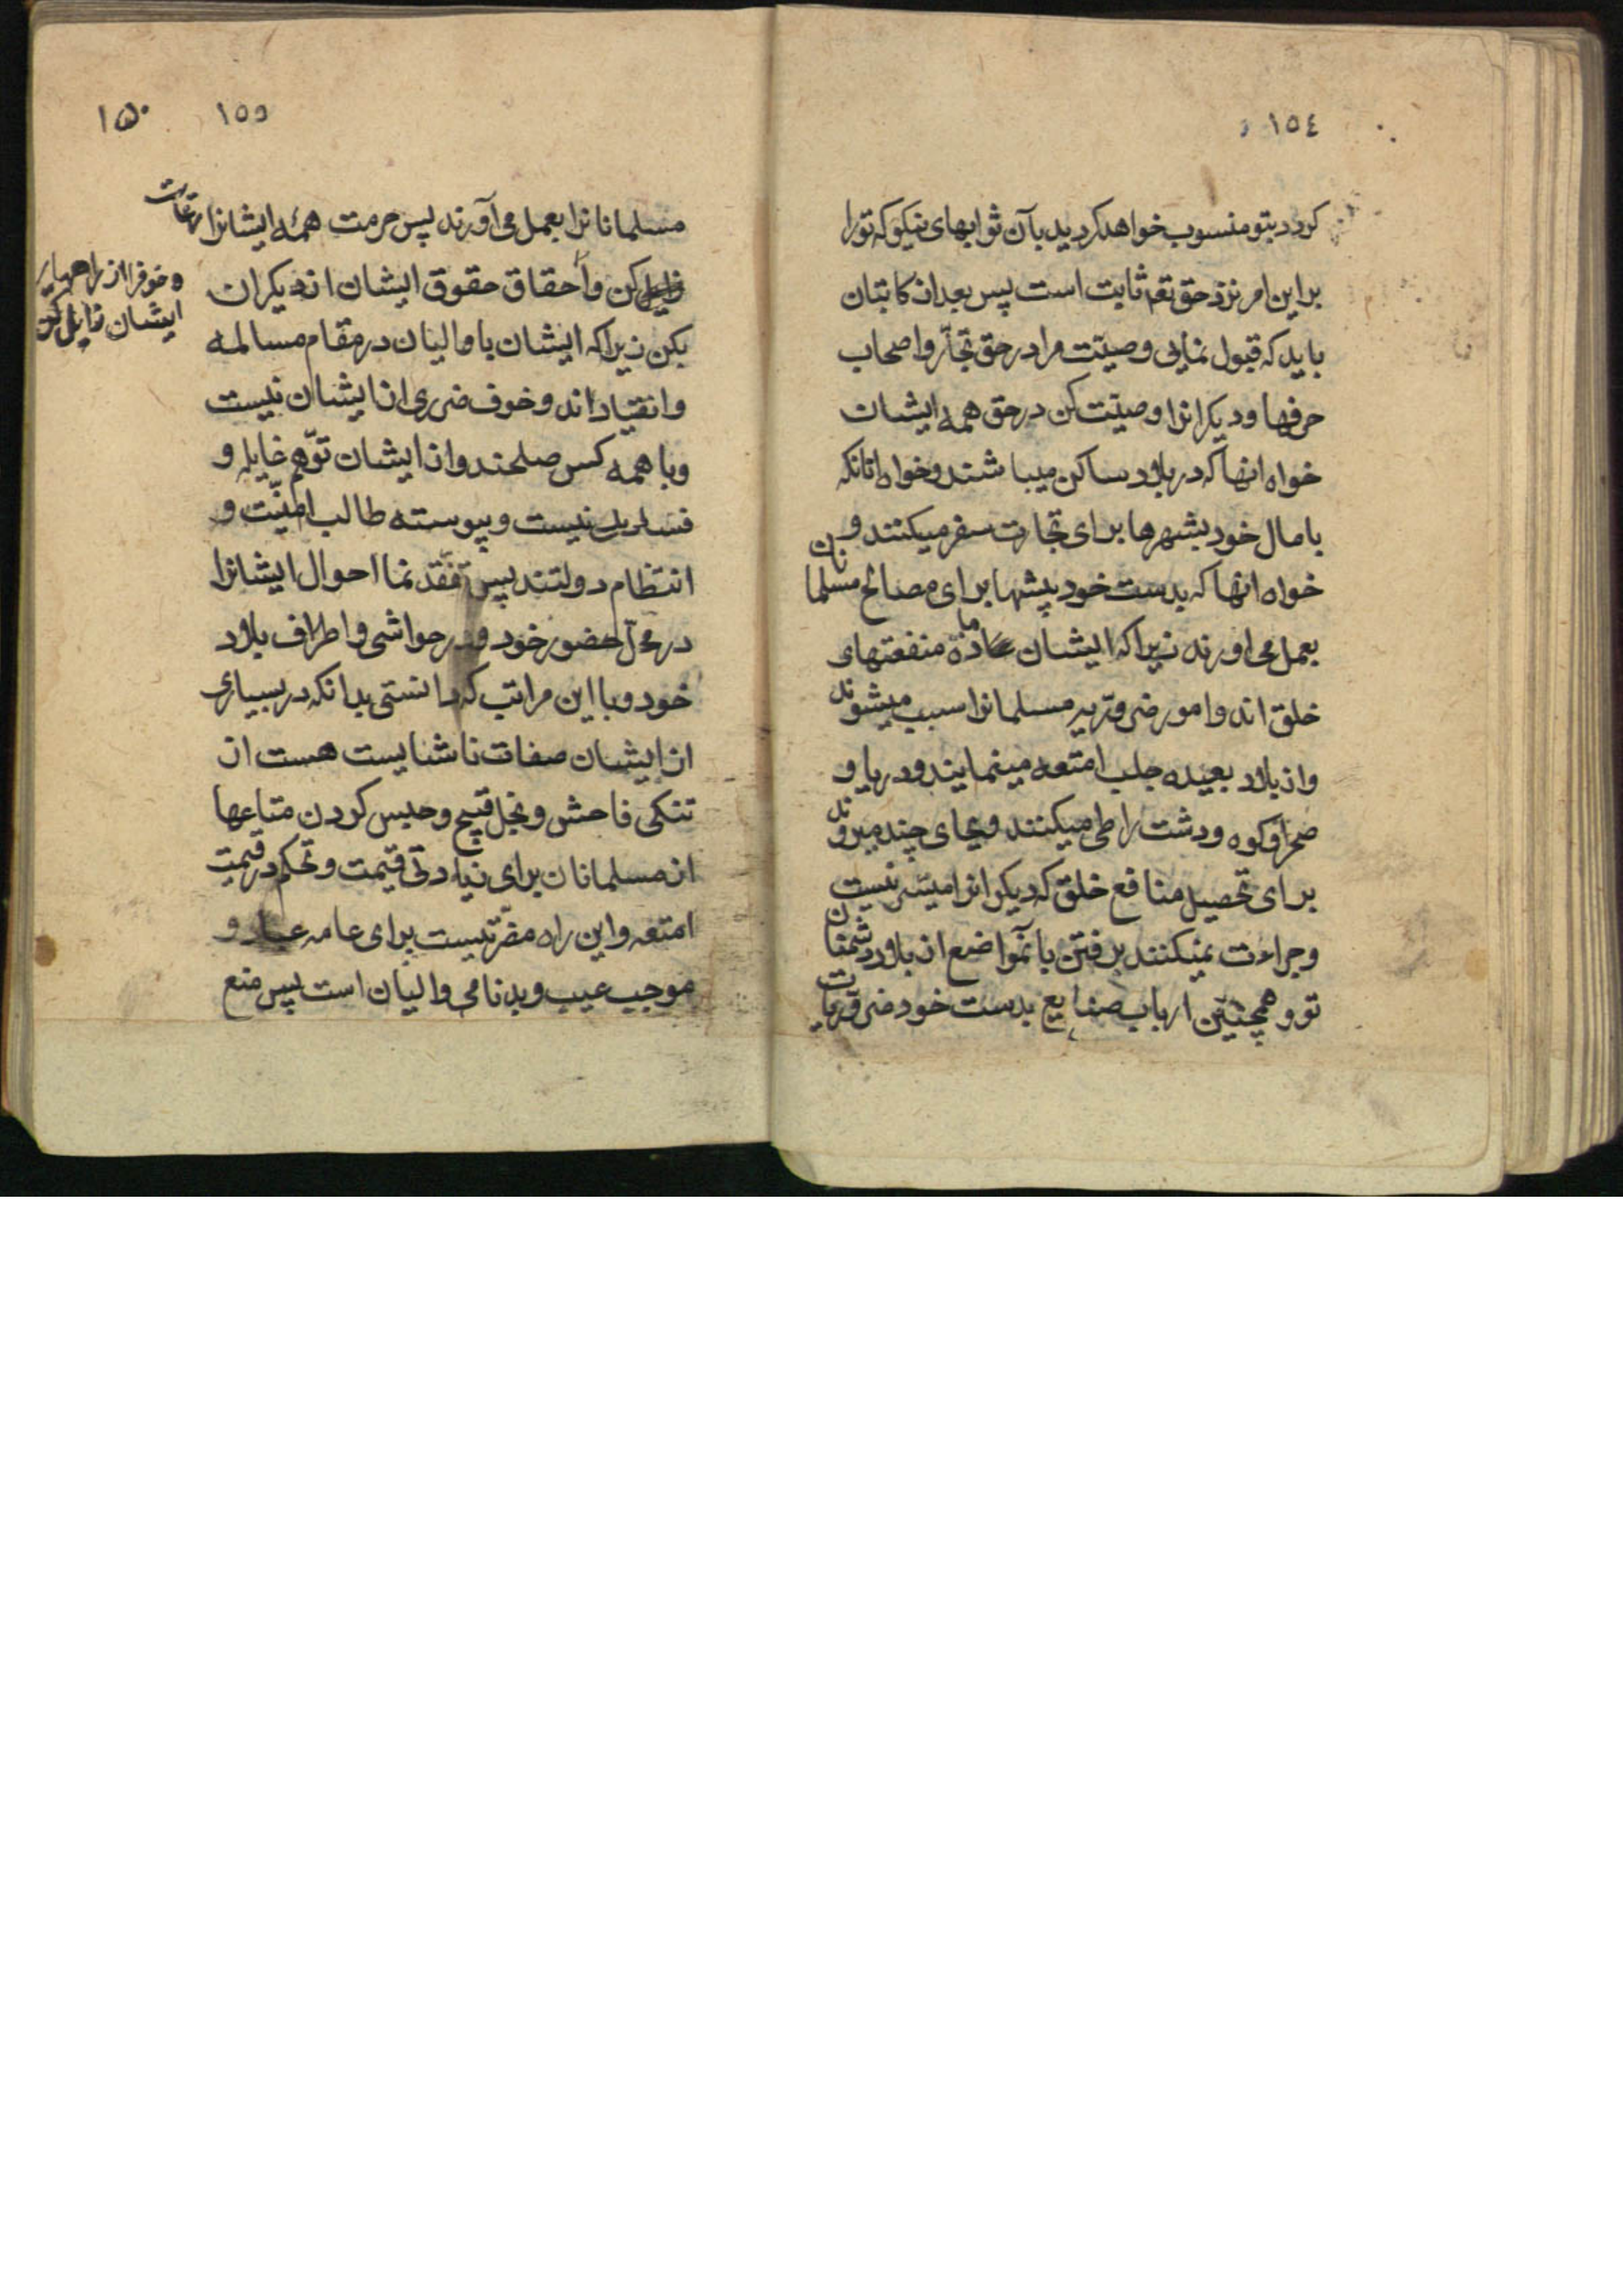 ١٥٤
كردد بتو منسوب خواهد كرديد بآن ثوابهاى نيكو كه تو را
بر اين امر نزد حق تعه ثابت است پس بعد از كاتبان
بايد كه قبول نمايى وصيّت مرا در حق تجّار و اصحاب
حرفها و ديكرانرا وصيّت كن در حق همه ايشان
خواه انها كه در بلاد ساكن ميباشند و خواه انانكه
با مال خود بشهرها براى تجارت سفر ميكنند و
خواه انها كه بدست خود پيشها براى مصالح مسلمانان
بعمل مى اورند زيرا كه ايشان مادهٔ منفعتهاى
خلق اند و امور ضروريه مسلمانرا سبب ميشوند
و از بلاد بعيده جلب امتعه مينمايند و دريا و
صحرا و كوه و دشت را طى ميكنند و بجاى چند ميروند
براى تحصيل منافع خلق كه ديكرانرا ميسّر نيست
و جراءت نميكنند برفتن بآنمواضع از بلاد دشمنان
تو و همچنين ارباب صنايع بدست خود ضروريات
١٥٥ ١۵٠
مسلمانانرا بعمل مى آورند پس حرمت همهٔ ايشانرا رعايت
كن و احقاق حقوق ايشان از ديكران
و خوفرا از راههاى
ايشان زايل كن
بكن زيرا كه ايشان با واليان در مقام مسالمه
و انقياد اند و خوف ضررى از ايشان نيست
و با همه كس صلحند و از ايشان توّهم غايله و
فسادى نيست و پيوسته طالب امنيّت و
انتظام دولتند پس تفقّد نما احوال ايشانرا
در محلّ حضور خود و در حواشى و اطراف بلاد
خود و با اين مراتب كه دانستى بدانكه در بسيارى
از ايشان صفات ناشايست هست از
تنكى فاحش و بخل قبيح و حبس كردن متاعها
از مسلمانان براى زيادتى قيمت و تحكم در قيمت
امتعه و اين راه مضرتيست براى عامه عباد و
موجب عيب و بدنامى واليان است پس منع